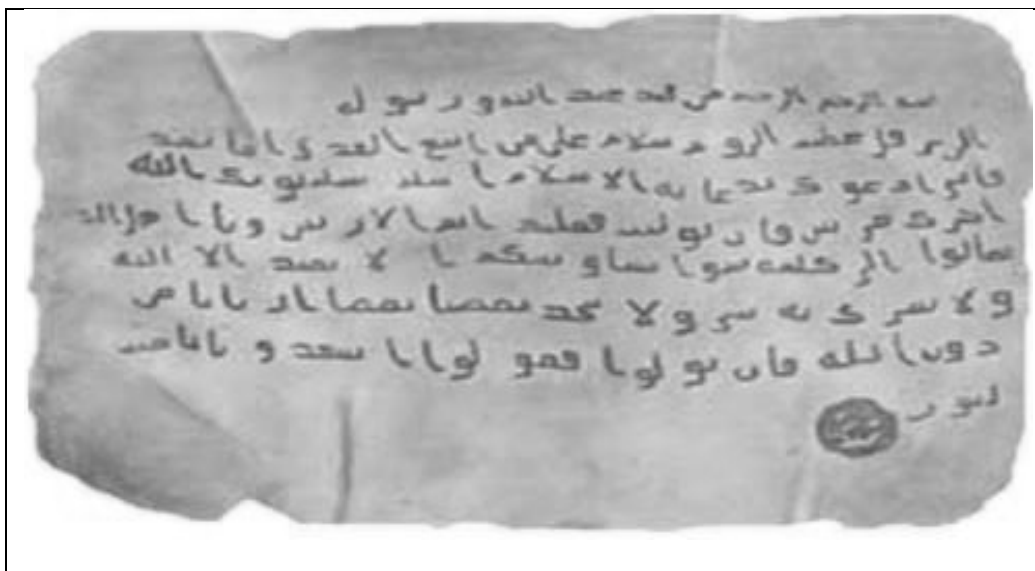 بسم الرحمن الرحيم من محمد عبد الله ورسول
الى هرقل عظيم الروم سلام على من اتبع الهدى اما بعد
فانى ادعوك بدعاية الاسلام اسلم تسلم يوتك الله
اجرك مرتين فان توليت فعليك اثم الاريسين ويا اهل
تعالوا الى كلمة سوا بيننا وبينكم ا لا نعبد الا الله
ولا نشرك به شى ولا يتخذ بعضنا بعضا اربابا من
دون الله فان تولوا فقولوا اشهدو بانا مس
لمون